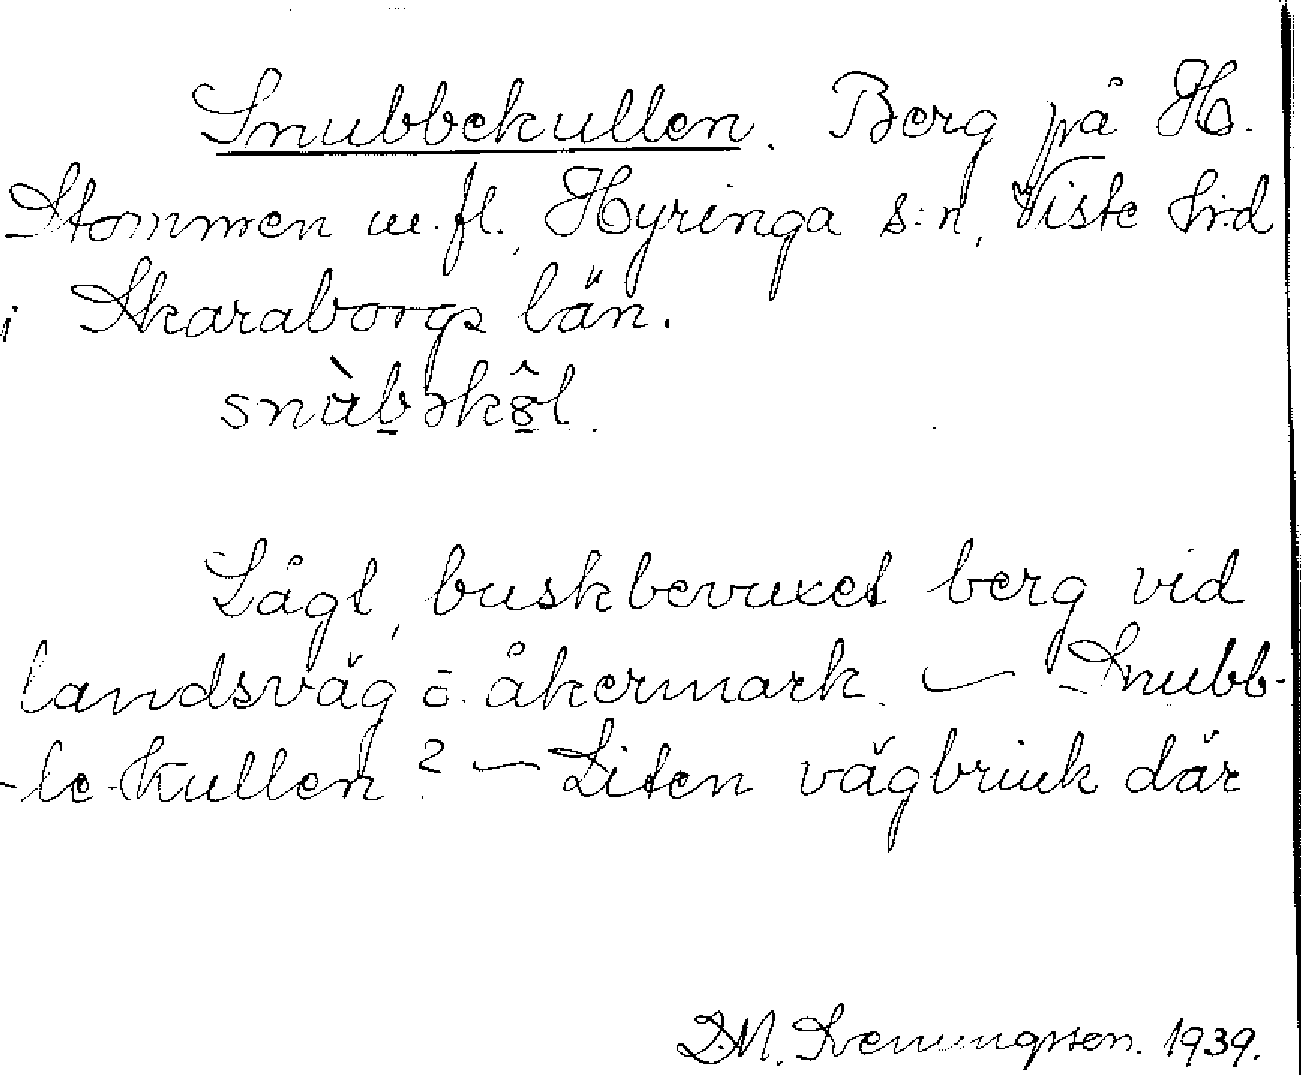 Snubbekullen. Berg på H.
Stommen m.fl., Hyringa s:n, Viste hrd
i Skaraborgs län.
snùb̲əkô̲l.
Lågt, buskbevuxet berg vid
landsväg o. åkermark. — Snubb-
-le-kullen? — Liten vägbrink där
1939.